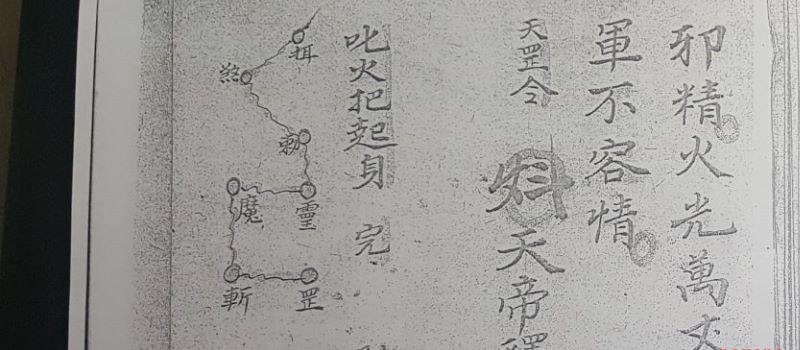 邪精火光萬丈
軍不容情
天罡令
天帝釋
叱火把起身 完
煞
勅
靈
魔
斬
罡